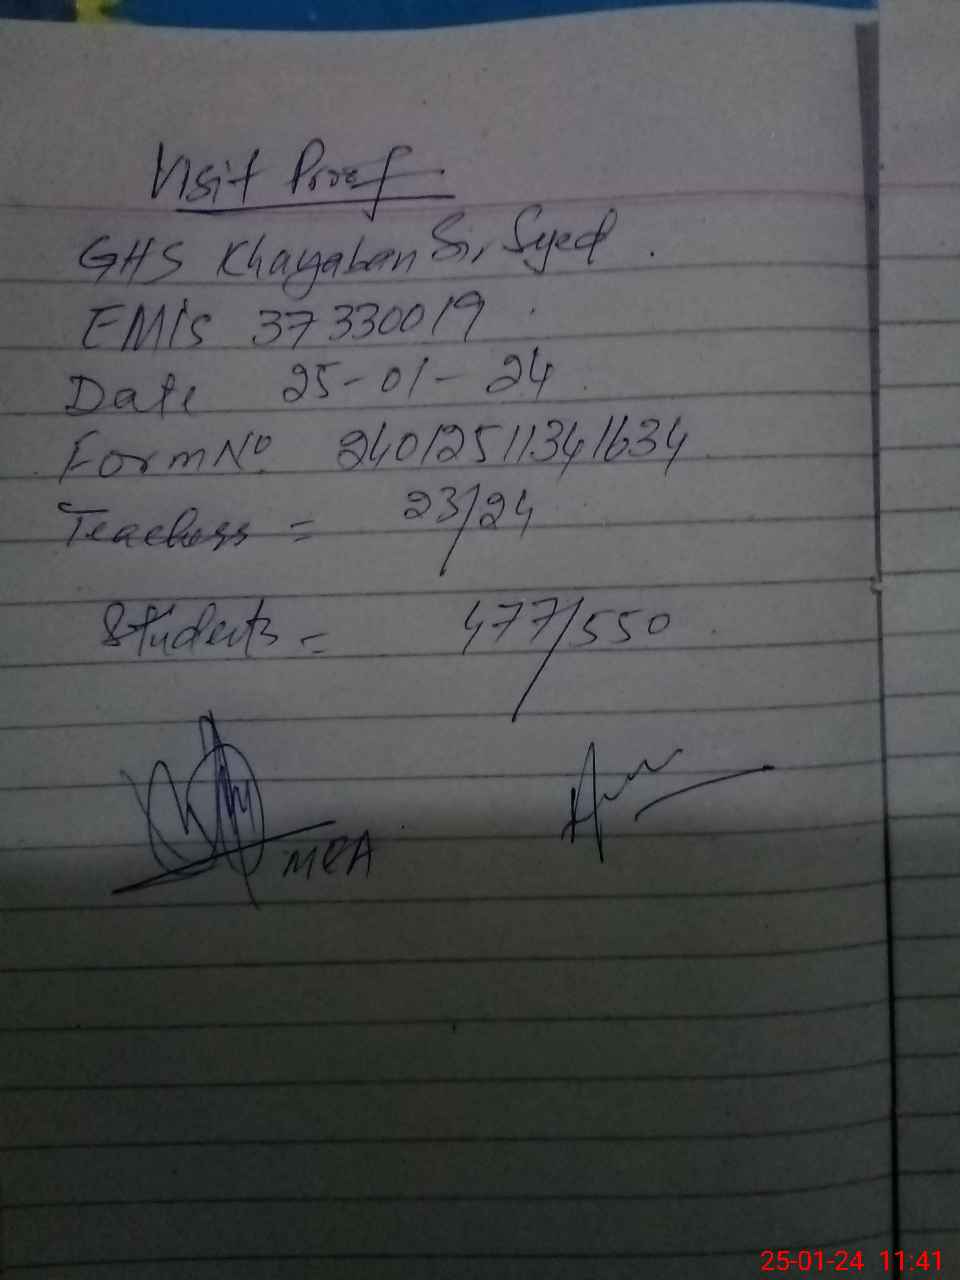 Visit Proof
GHS Khayaban Sir Syed.
EMIS 37330019
Date 25-01-24
Form No 24012511341634
Teachers = 23/24
Students = 477/550
MEA
25-01-24 11:41